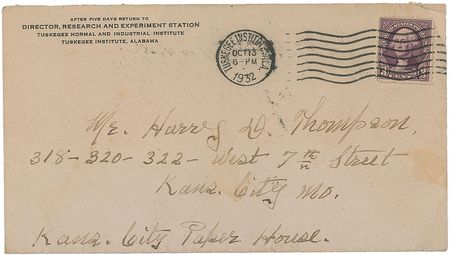 AFTER FIVE DAYS RETURN TO
DIRECTOR, RESEARCH AND EXPERIMENT STATION
TUSKEGEE NORMAL AND INDUSTRIAL INSTITUTE
TUSKEGEE INSTITUTE, ALABAMA
TUSKEGEE INSTITUTE, ALA.
OCT 13
6 - PM
1932
Mr. Harry D. Thompson,
318-320-322- West 7th Street
Kans. City Mo.
Kans. City Paper House.